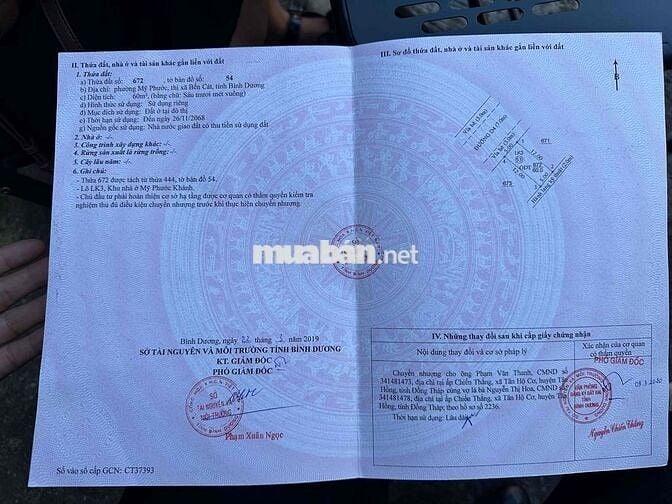 II. Thửa đất, nhà ở và tài sản khác gắn liền với đất
1. Thửa đất:
a) Thửa đất số: 672, tờ bản đồ số: 54
b) Địa chỉ: phường Mỹ Phước, thị xã Bến Cát, tỉnh Bình Dương
c) Diện tích: 60m², (bằng chữ: Sáu mươi mét vuông)
d) Hình thức sử dụng: Sử dụng riêng
đ) Mục đích sử dụng: Đất ở tại đô thị
e) Thời hạn sử dụng: Đến ngày 26/11/2068
g) Nguồn gốc sử dụng: Nhà nước giao đất có thu tiền sử dụng đất
2. Nhà ở: -/-
3. Công trình xây dựng khác: -/-
4. Rừng sản xuất là rừng trồng: -/-
5. Cây lâu năm: -/-
6. Ghi chú:
- Thửa 672 được tách từ thửa 444, tờ bản đồ 54.
- Lô LK3, Khu nhà ở Mỹ Phước Khánh.
- Chủ đầu tư phải hoàn thiện cơ sở hạ tầng được cơ quan có thẩm quyền kiểm tra
nghiệm thu đủ điều kiện chuyển nhượng trước khi thực hiện chuyển nhượng.
Bình Dương, ngày 22 tháng 3 năm 2019
SỞ TÀI NGUYÊN VÀ MÔI TRƯỜNG TỈNH BÌNH DƯƠNG
KT. GIÁM ĐỐC
PHÓ GIÁM ĐỐC
SỞ
TÀI NGUYÊN
MÔI TRƯỜNG
Phạm Xuân Ngọc
Số vào sổ cấp GCN: CT37393
III. Sơ đồ thửa đất, nhà ở và tài sản khác gắn liền với đất
B
671
LK3
672
ODT
673
muaban.net
TỈNH BÌNH DƯƠNG
IV. Những thay đổi sau khi cấp giấy chứng nhận
Nội dung thay đổi và cơ sở pháp lý
Xác nhận của cơ quan
có thẩm quyền
PHÓ GIÁM ĐỐC
Chuyển nhượng cho ông Phạm Văn Thanh, CMND số
341481473, địa chỉ tại ấp Chiến Thắng, xã Tân Hộ Cơ, huyện Tân
Hồng, tỉnh Đồng Tháp cùng vợ là bà Nguyễn Thị Hoa, CMND số
341481478, địa chỉ tại ấp Chiến Thắng, xã Tân Hộ Cơ, huyện Tân
Hồng, tỉnh Đồng Tháp; theo hồ sơ số 2236.
Thời hạn sử dụng: Lâu dài
VĂN PHÒNG
ĐĂNG KÝ ĐẤT ĐAI
TỈNH
BÌNH DƯƠNG
Nguyễn Chiến Thắng